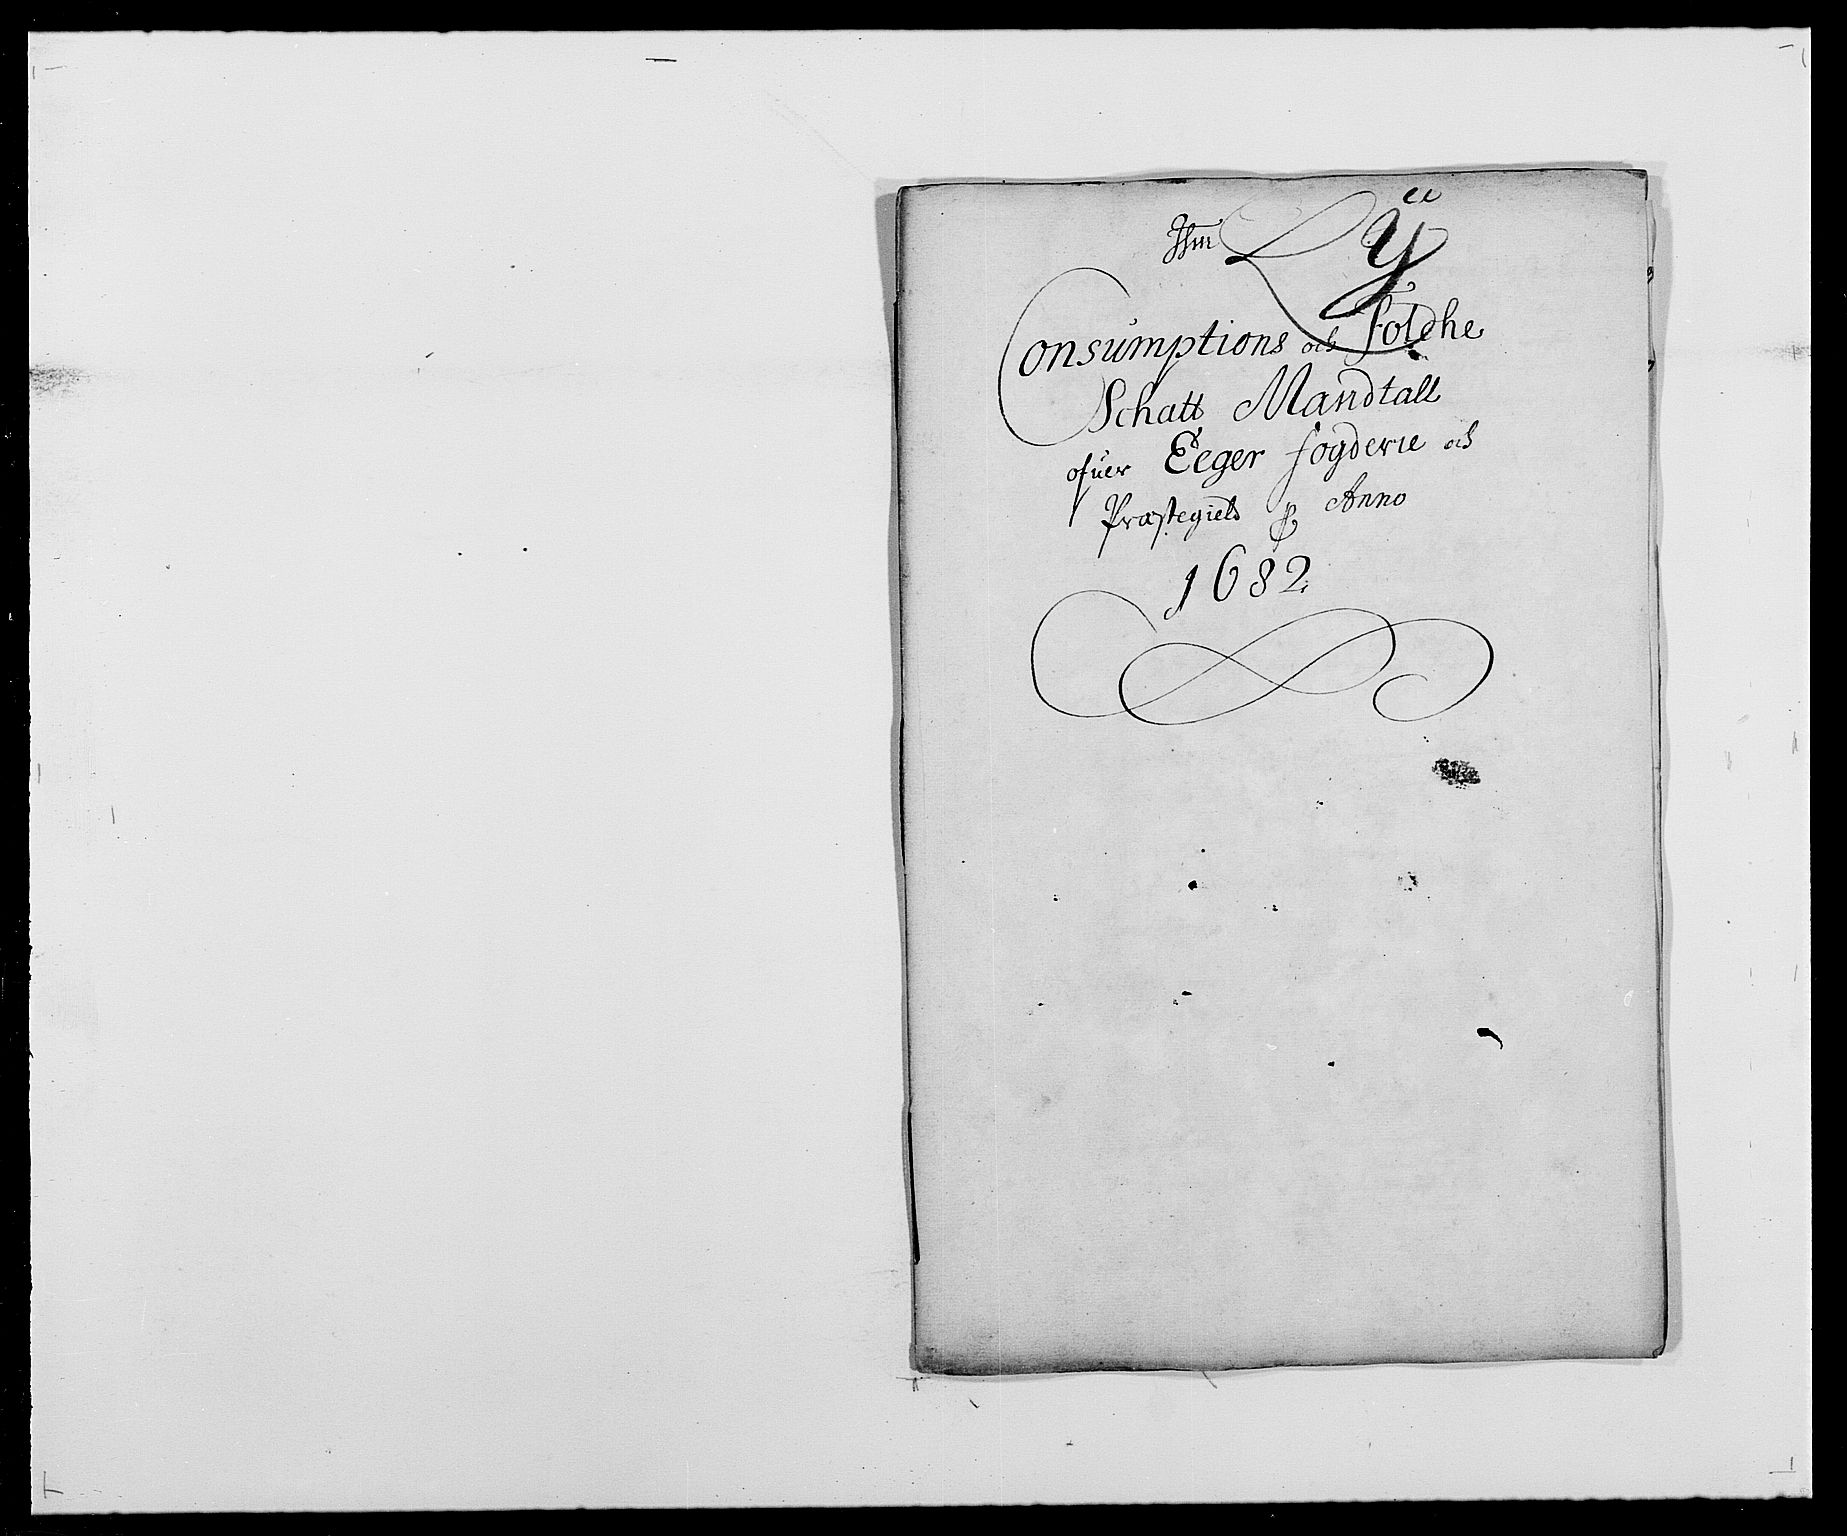 Consumptions och folche
Schatt Mandtall
ofuer Eeger fogderie och
Præstegield Anno
1682